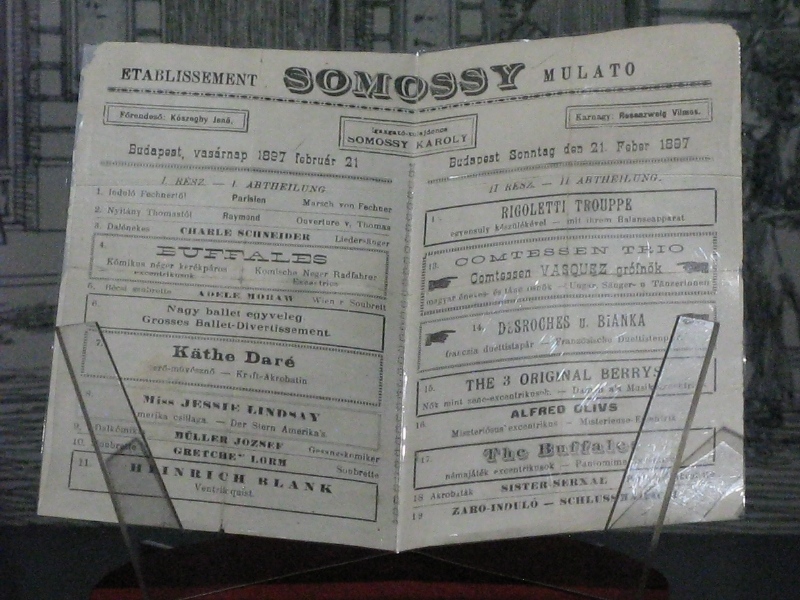 ETABLISSEMENT SOMOSSY MULATO
Főrendező: Kőszeghy Jenő.
SOMOSSY KÁROLY
Karnagy: Rosenzweig Vilmos.
Budapest, vasárnap 1897 február 21
Budapest Sonntag den 21. Feber 1897
I. RÉSZ. — I. ABTHEILUNG
1. Induló Fechnertől Parisien Marsch von Fechner
2. Nyitány Thomastól Raymond Ouverture v. Thomas
3. Dalénekes CHARLE SCHNEIDER Liedersänger
4. BUFFALES
Komikus néger kerékpáros Komische Neger Radfahrer
excentrikusok Excentrics
5. Bécsi soubrette ADELE MORAW Wien r Soubrett
6. Nagy ballet egyveleg
Grosses Ballet-Divertissement.
7. Käthe Daré
erő-művésznő — Kraft-Akrobatin
8. Miss JESSIE LINDSAY
amerika csillaga. — Der Stern Amerika's
9. Dalkómikus MÜLLER JOZSEF Gesangskomiker
10. Soubrette GRETCHEN LORM Soubrette
11. HEINRICH BLANK
Ventriloquist.
II RÉSZ. — II ABTHEILUNG.
RIGOLETTI TROUPPE
egyensuly készülékével — mit ihrem Balanceapparat
13. COMTESSEN TRIO
Comtessen VASQUEZ grófnők
magyar ének- és táncosnők — Ungar. Sänger- u Tänzerinnen
14. DESROCHES u. BIANKA
francia duettistapár — Französische Duettisten
15. THE 3 ORIGINAL BERRYS
Nők mint zene-excentrikusok. — Damen als Musik
16. ALFRED OLIVS
Miszteriósus excentrikus — Misterieuse Excentrik
17. The Buffales
némajáték excentrikusok — Pantomime
18 Akrobaták SISTER SERXAL
19 ZÁRÓ-INDULÓ — SCHLUSSMARSCH